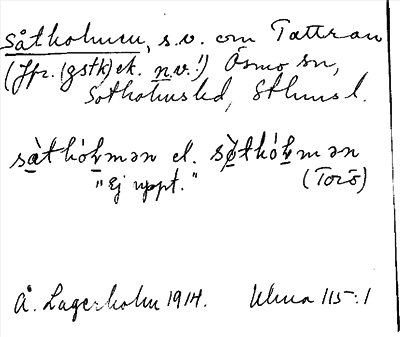 Såtholmen, s.v. om Tattran
(Jfr. (gstk) ek. n.v.!) Ösmo sn,
Sotholms hd, Sthms l.
sàthólmən el. sø̀thólmən
"Ej uppt." (Torö)
Å. Lagerholm 1914. Utna 115:1